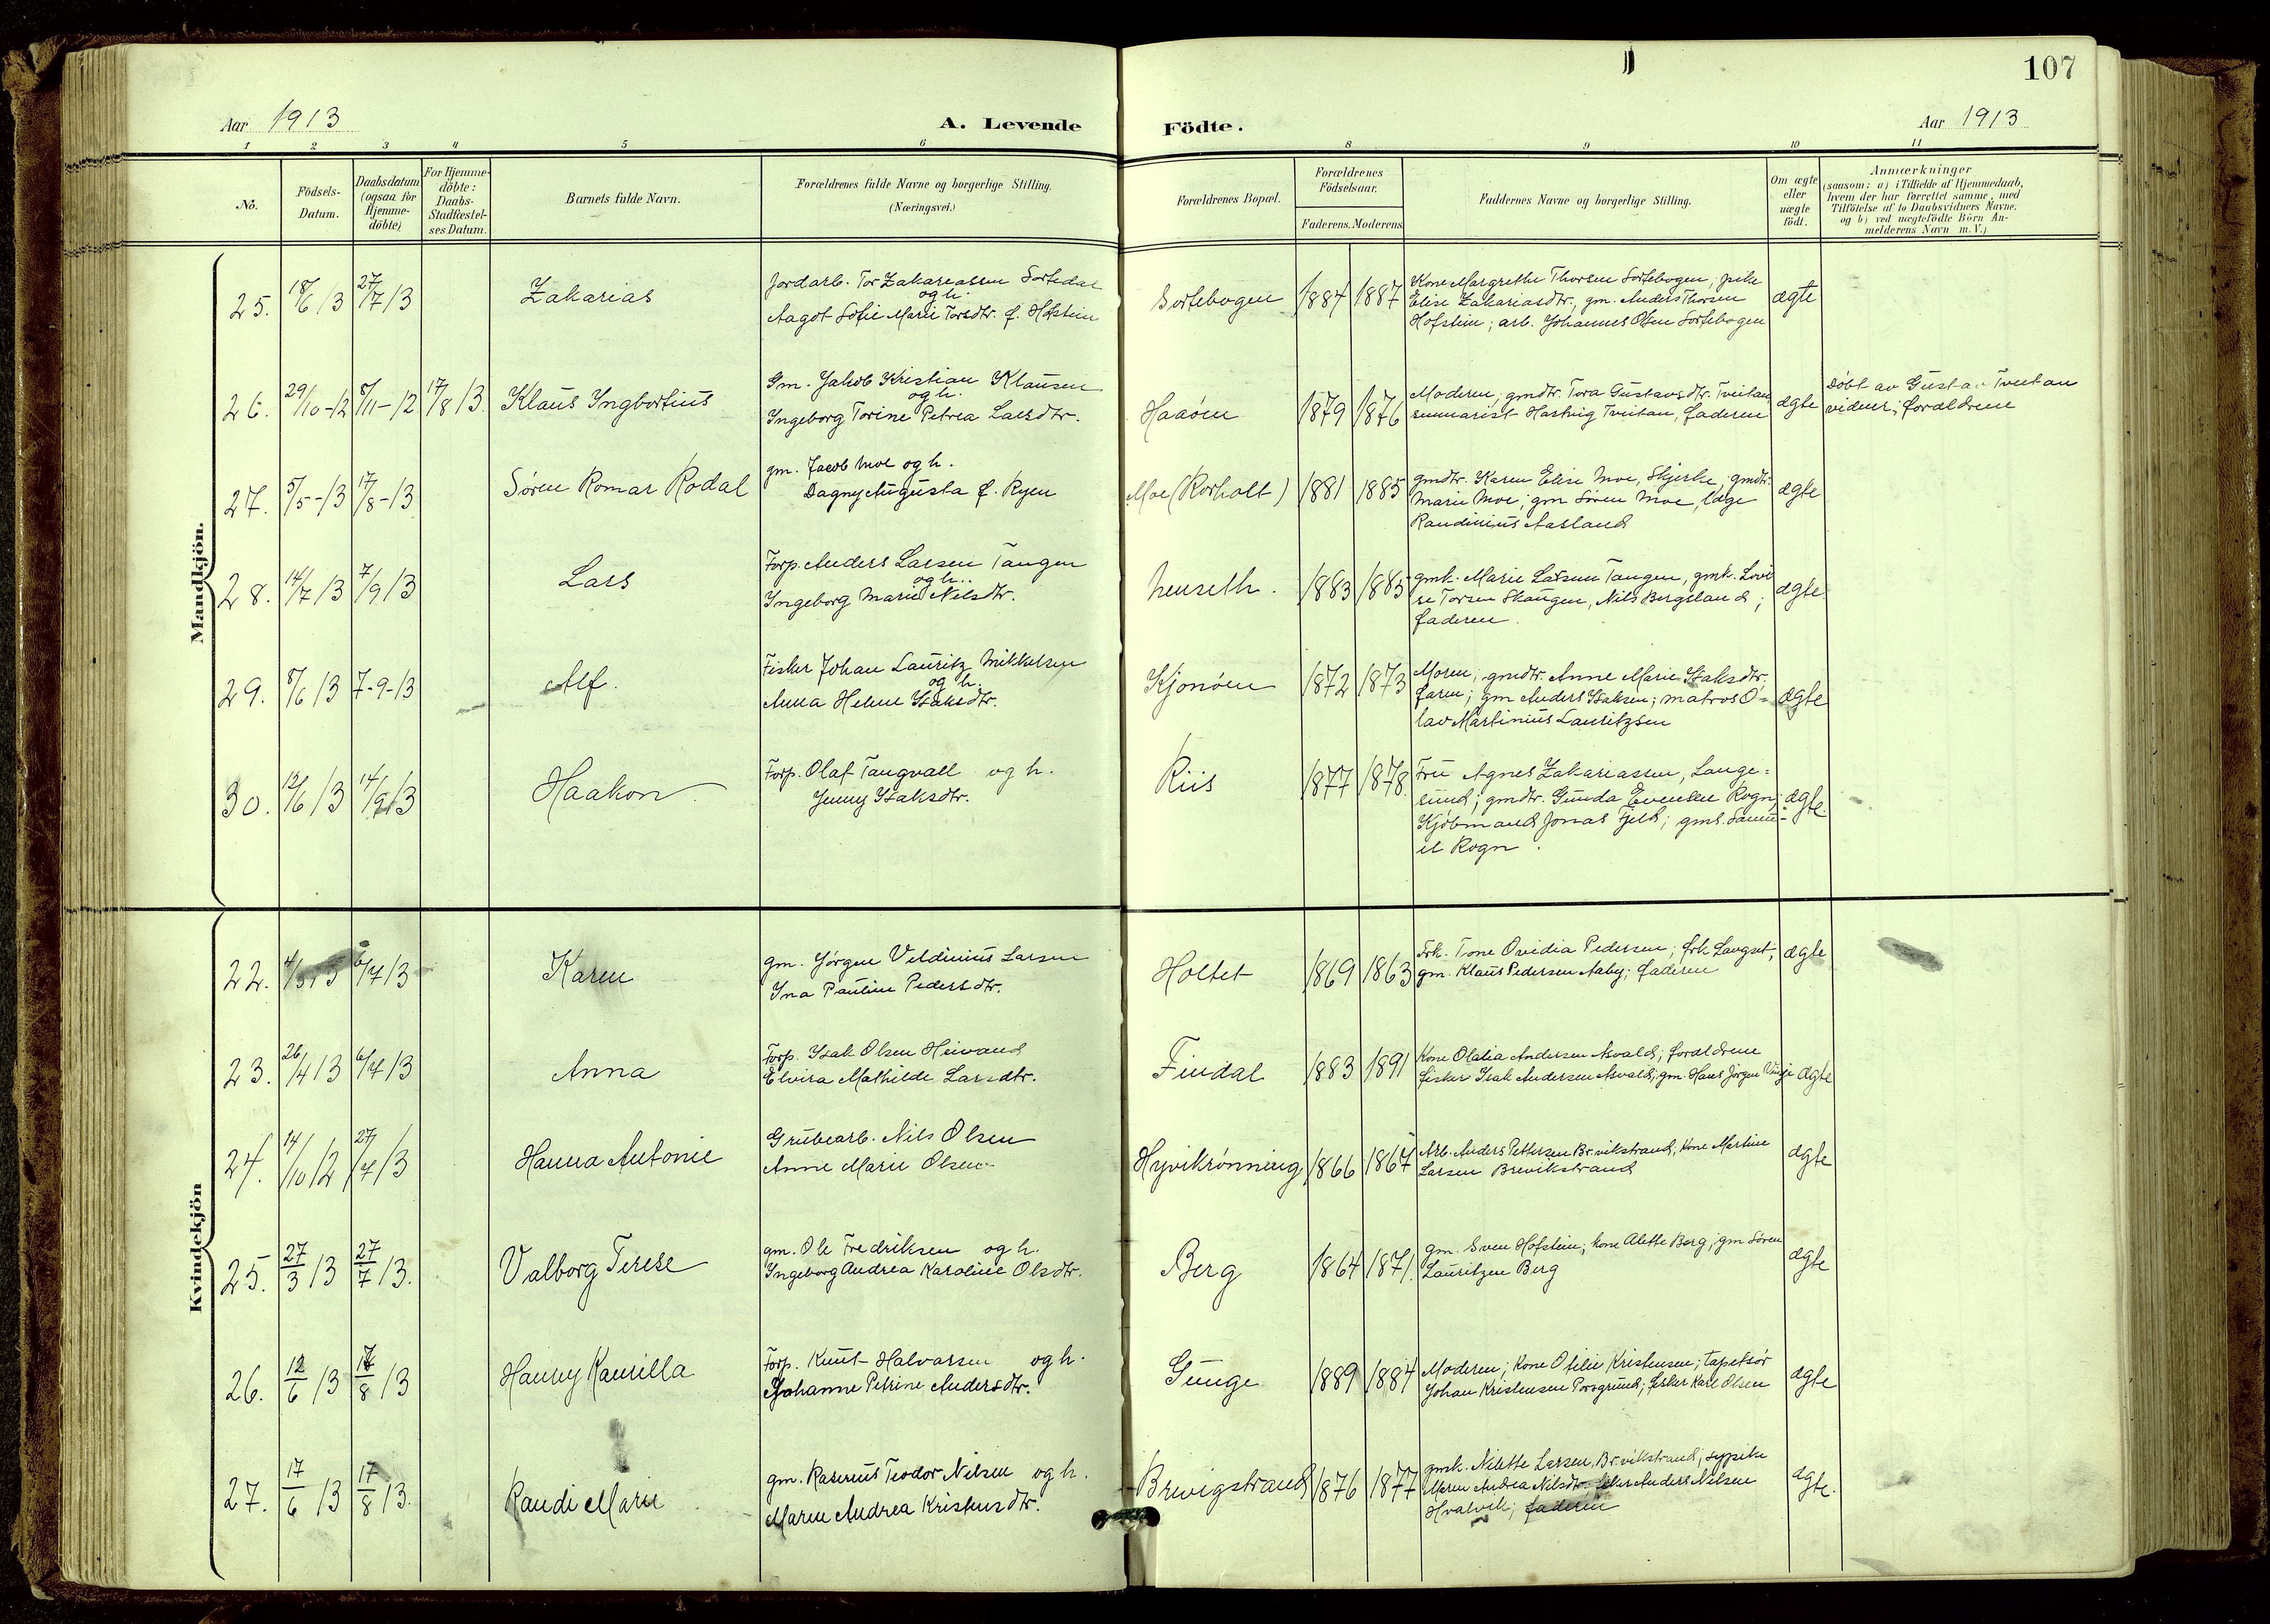 107
Aar 1913
A. Levende
Födte.
Aar 1913
1 2 3 4 5 6 8 9 10 11
No.
Födsels-
Datum.
Daabsdatum
(ogsaa for
Hjemme-
döbte)
For Hjemme-
döbte:
Daabs-
Stadfæstel-
ses Datum.
Barnets fulde Navn.
Forældrenes fulde Navne og borgerlige Stilling.
(Næringsvei.)
Forældrenes Bopæl.
Forældrenes
Födselsaar.
Faderens. Moderens.
Faddernes Navne og borgerlige Stilling.
Om ægte
eller
uægte
födt.
Anmærkninger
(saasom: a) i Tilfælde af Hjemmedaab,
hvem der har forrettet samme, med
Tilföielse af to Daabsvidners Navne.
og b) ved uægtefödte Börn An-
melderens Navn m. V.)
Mandkjön.
25. 18/6 13 27/7 13 Zakarias
Jordarb. Tor Zakareassen Sortedal
og h.
Aagot Sofie Marie Torsdtr. f. Hofstein
Sortebogen 1884 1887
Kone Margrethe Thorsen Sortebogen, pike
Elise Zakariasdtr., gm. Anders Thorsen
Hofstein; arb. Johannes Olsen Sortebogen
ægte
26. 29/10-12 8/11-12 17/8 13. Klaus Ingbortius
Gm. Jakob Kristian Klausen
og h.
Ingeborg Torine Petrea Larsdtr.
Haaöen 1879 1876
Moderen, gmdtr. Tora Gustavsdtr. Tveitan
seminarist Hartvig Tveitan, faderen
ægte
Döbt av Gustav Tveitan
vidner; forældrene
27. 5/5-13 17/8-13 Sören Romar Rodal
gm. Jacob Moe og h.
Dagny Augusta f. Ryen
Moe (Rorholt) 1881 1885
gmdtr. Karen Elise Moe, Skjerke, gmdtr.
Marie Moe; gm Sören Moe, læge
Randinius Aasland
ægte
28. 14/7 13 7/9 13 Lars
Forp. Anders Larsen Tangen
og h.
Ingeborg Marie Nilsdtr.
Henseth. 1883 1885
gmk. Marie Larsen Tangen, gmk. Lovi
se Torsen Skaugen, Nils Bergsland;
faderen.
ægte.
29. 8/6 13 7-9-13 Alf.
Fisker Johan Lauritz Mikkelsen
og h.
Anna Helene Isaksdtr.
Kjönöen 1872 1873
Moren; gmdtr. Anne Marie Isaksdtr.
faren; gm Anders Isaksen; matros O=
lav Martinius Lauritzsen
ægte
30. 12/6 13 14/9 13 Haakon.
Forp. Olaf Tangvall og h.
Jenny Isaksdtr.
Riis 1877 1878.
Fru Agnes Zakariassen, Lange=
sund; gmdtr. Gunda Evensen Rogn;
Kjöbmand Jonas Fjeld; gms. Samu=
el Rogn.
ægte.
Kvindekjön
22. 6/7 13 Karen
gm. Jörgen Veldinius Larsen
Ina Pauline Pedersdtr.
Holtet 1869 1863
Frk. Tone Ovidia Pedersen; frk Langset;
gm. Klaus Pedersen Aaby; faderen
ægte
23. 26/4 13 6/7 13 Anna
Forp. Isak Olsen Heivand
Elvira Mathilde Larsdtr.
Findal 1883 1891
Kone Olalia Andersen Asvald; forældrene
fisker Isak Andersen Asvald; gm. Hans Jörgen Vinje
ægte
24. 14/10 12 27/7 13 Hanna Antonie
Grubearb. Nils Olsen
Anne Marie Olsen
Hyvikrönning 1866 1867
Arb. Anders Pettersen Brevikstrand; kone Martine
Larsen Brevikstrand
ægte
25. 27/3 13 27/7 13. Valborg Terese
gm. Ole Fredriksen og h.
Ingeborg Andrea Karoline Olsdtr.
Berg 1864 1871.
gm. Sven Hofstein; kone Alette Berg; gm Sören
Lauritzen Berg
ægte
26. 12/6 13 17/8 13 Hanny Kamilla
Forp. Knut Halvorsen og h.
Johanne Petrine Andersdtr.
Gunge 1889 1884
Moderen; kone Otilie Kristensen; tapetsör
Johan Kristensen Porsgrund; fisker Karl Olsen
ægte
27. 17/6 13 17/8 13. Randi Marie
gm. Rasmus Teodor Nilsen og h.
Maren Andrea Kristensdtr.
Brevigstrand 1876 1877
gmk. Nilette Larsen, Brevikstrand; sypike
Maren Andrea Nilsdtr.; fisker Anders Nilsen
Hvalvik; faderen
ægte.